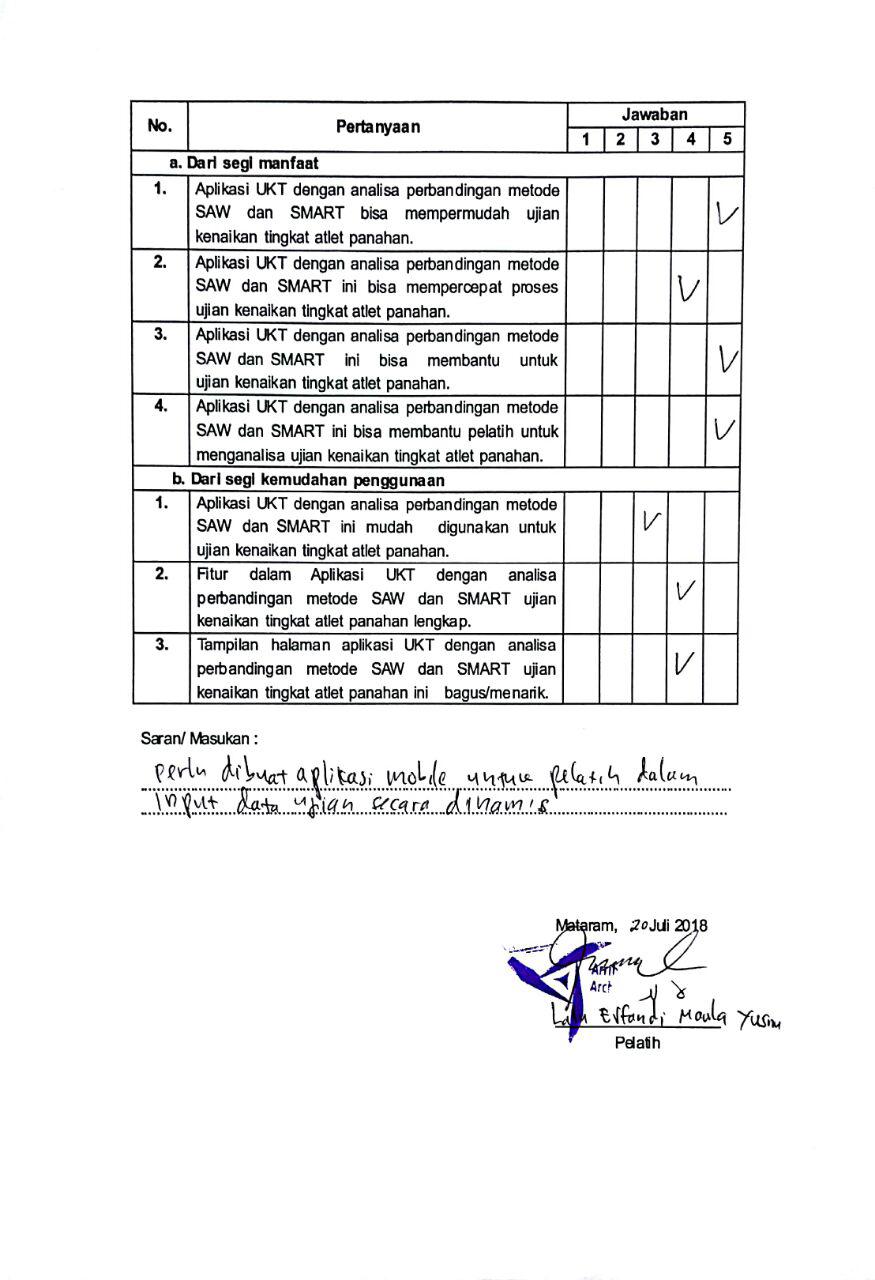 No. Pertanyaan Jawaban
1 2 3 4 5
a. Dari segi manfaat
1. Aplikasi UKT dengan analisa perbandingan metode
SAW dan SMART bisa mempermudah ujian
kenaikan tingkat atlet panahan.
2. Aplikasi UKT dengan analisa perbandingan metode
SAW dan SMART ini bisa mempercepat proses
ujian kenaikan tingkat atlet panahan.
3. Aplikasi UKT dengan analisa perbandingan metode
SAW dan SMART ini bisa membantu untuk
ujian kenaikan tingkat atlet panahan.
4. Aplikasi UKT dengan analisa perbandingan metode
SAW dan SMART ini bisa membantu pelatih untuk
menganalisa ujian kenaikan tingkat atlet panahan.
b. Dari segi kemudahan penggunaan
1. Aplikasi UKT dengan analisa perbandingan metode
SAW dan SMART ini mudah digunakan untuk
ujian kenaikan tingkat atlet panahan.
2. Fitur dalam Aplikasi UKT dengan analisa
perbandingan metode SAW dan SMART ujian
kenaikan tingkat atlet panahan lengkap.
3. Tampilan halaman aplikasi UKT dengan analisa
perbandingan metode SAW dan SMART ujian
kenaikan tingkat atlet panahan ini bagus/menarik.
Saran/ Masukan :
perlu dibuat aplikasi mobile untuk pelatih dalam
input data ujian secara dinamis
Mataram, 20 Juli 2018
Arch
Lalu Erfandi Maula Yusnu
Pelatih